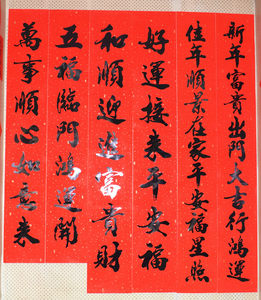 新年富貴出門大吉行鴻運
佳年順景在家平安福星照
好運接來平安福
和順迎進富貴財
五福臨門鴻運開
萬事順心如意來